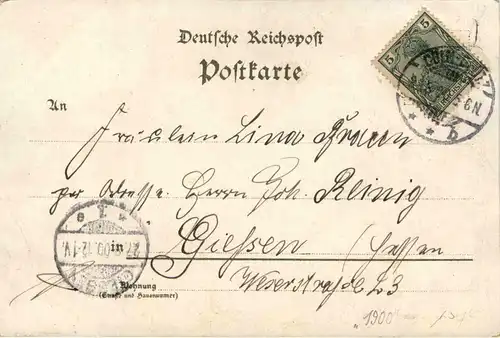 Deutsche Reichspost
Postkarte
5 5
CÖLN
8-9N
* * b
An
Fräulein Lina Braun
per Adresse. Herrn Joh. Reinig
in Giessen (Hessen
Weserstraße 23
27.9.00.12-1V.
Wohnung
(Straße und Hausnummer)
"1900